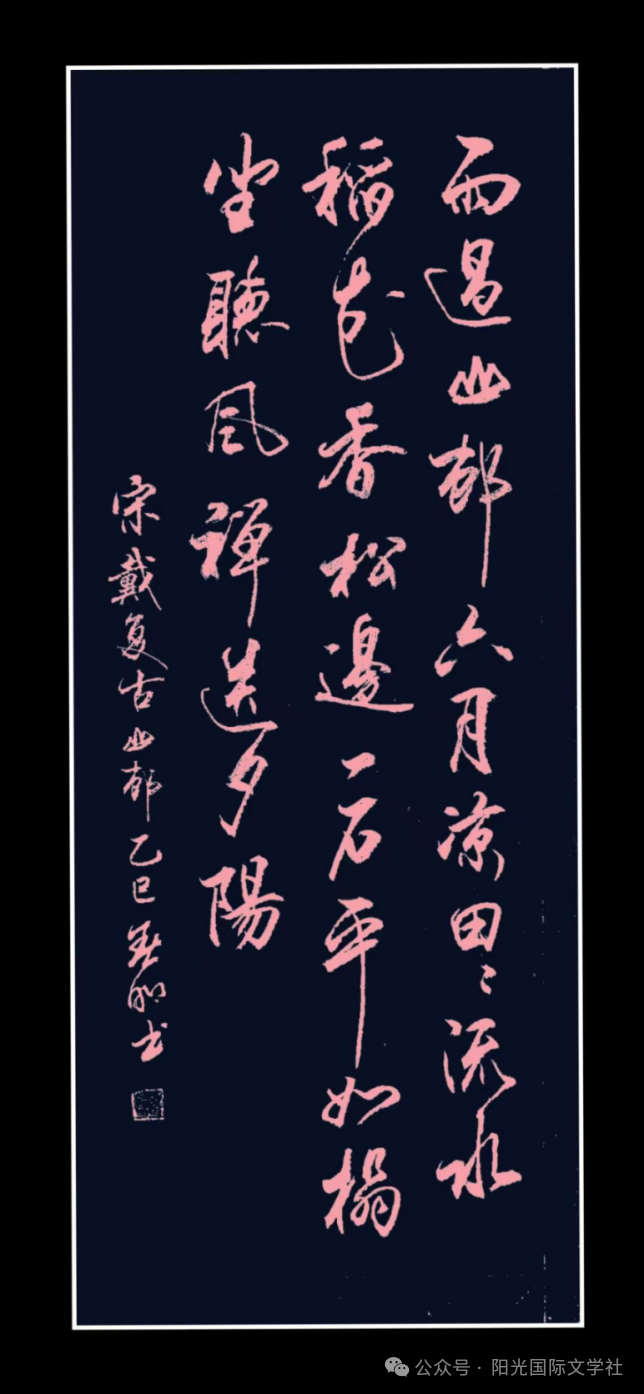 雨過山邨六月凉田々流水
稻花香松邊一石平如榻
坐聽风禪送夕陽
宋戴复古山邨乙巳书
公众号 · 阳光国际文学社